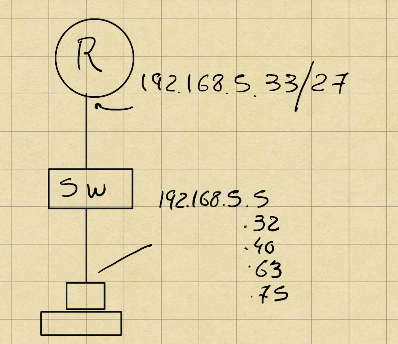 R
192.168.5.33/27
SW
192.168.5.5
.32
.40
.63
.75